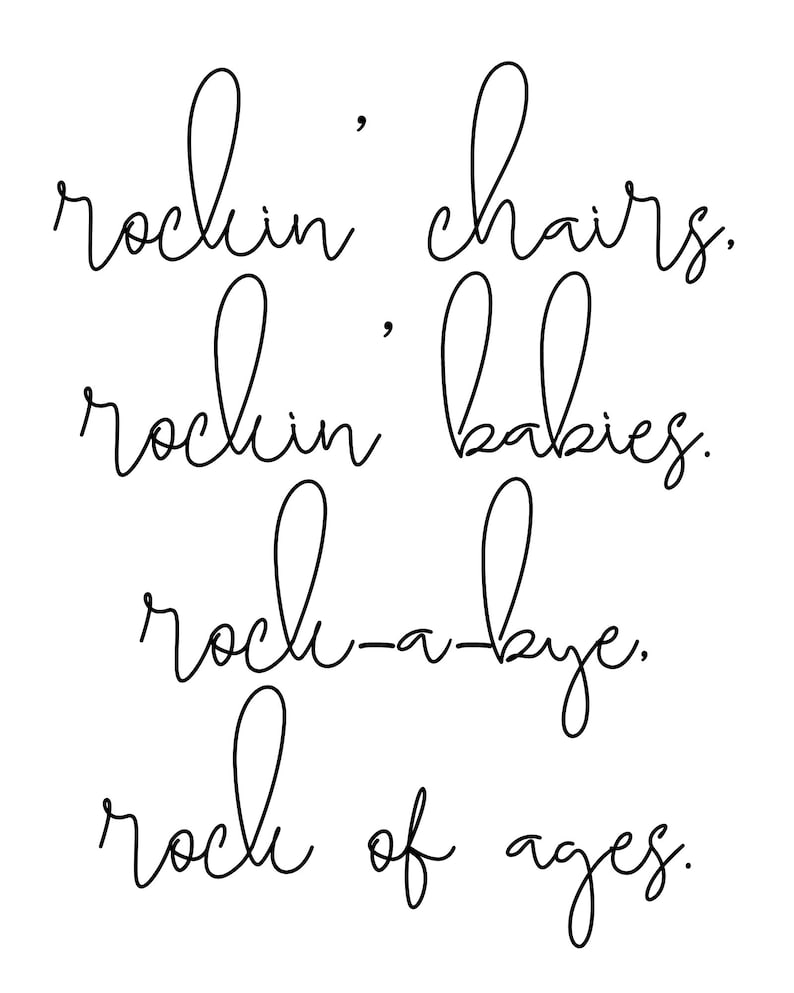 rockin' chairs,
rockin' babies.
rock-a-bye,
rock of ages.